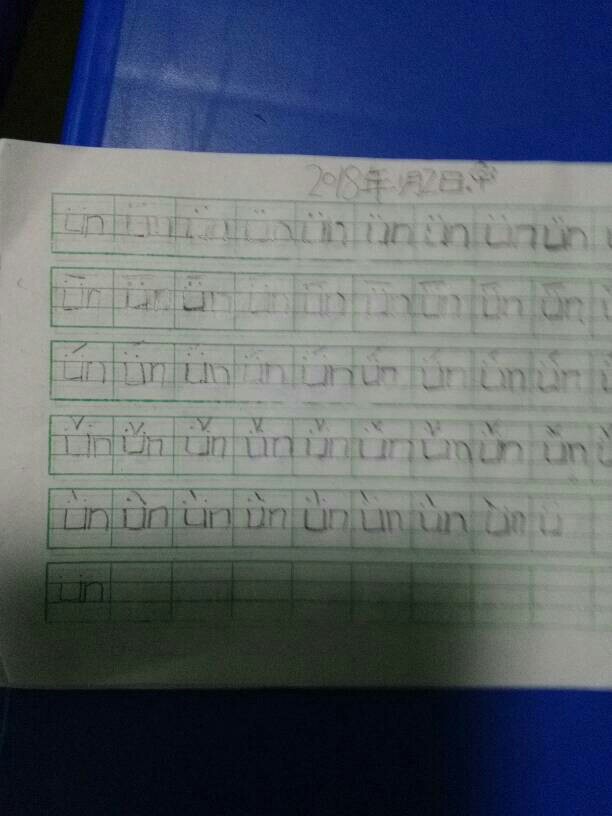 2018年1月2日
ün ün ün ün ün ün ün ün ün
ǖn ǖn ǖn ǖn ǖn ǖn ǖn ǖn ǖn
ǘn ǘn ǘn ǘn ǘn ǘn ǘn ǘn ǘn
ǚn ǚn ǚn ǚn ǚn ǚn ǚn ǚn ǚn
ǜn ǜn ǜn ǜn ǜn ǜn ǜn ǜn ü
ün